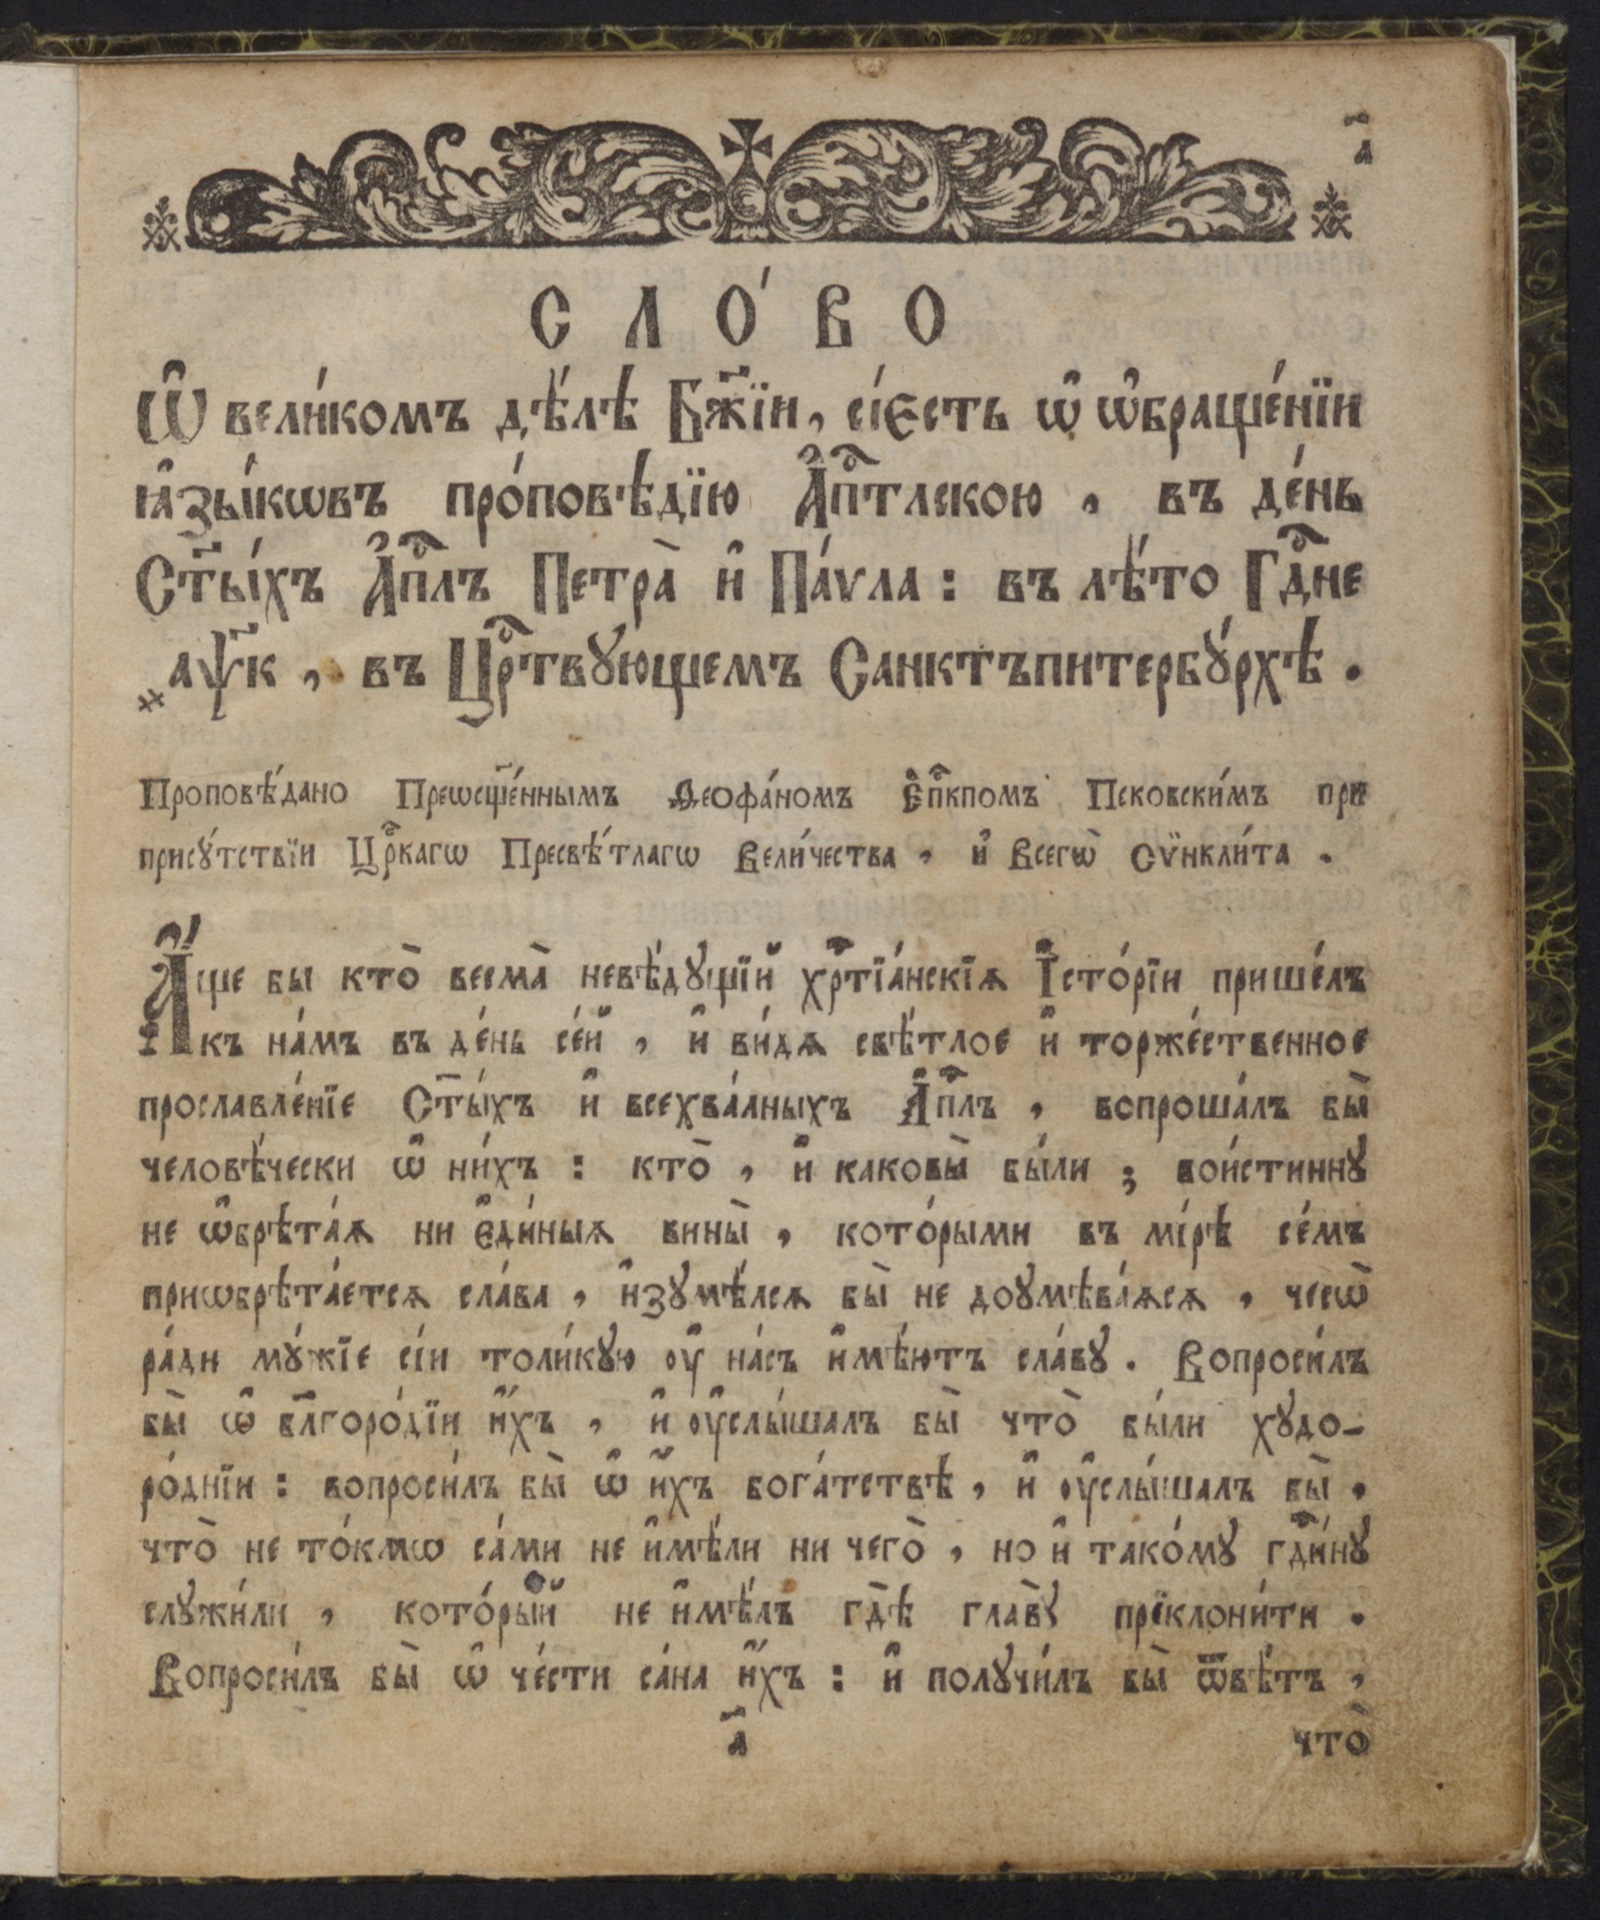 а҃
СЛО́ВО
Ѽ вели́комъ дѣ́лѣ Бж҃їи, сі́єсть ѡ҆ ѡ҆браще́нїи
ꙗ҆зы́кѡвъ про́повѣ́дїю А҆пⷭ҇тлскою, въ де́нь
Ст҃ы́хъ А҆пⷭ҇лъ Петра̀ и҆ Па́ѵла: въ лѣ́то Гдⷭ҇не
҂аѱ҃к, въ Црⷭ҇твꙋющемъ Санктъпитербꙋ́рхѣ.
Проповѣ́дано Преѡсщ҃е́ннымъ Ѳеофа́номъ Е҆пⷭ҇кпомъ Псковски́мъ при
присꙋ́тствїи Црⷭ҇кагѡ Пресвѣ́тлагѡ Вели́чества, и҆ Всегѡ̀ Сѷнкли́та.
А҆́ще бы кто̀ весма̀ невѣ́дꙋщїй хрⷭ҇тїа́нскїѧ І҆сто́рїи прише́лъ
къ на́мъ въ де́нь се́й, и҆ ви́дѧ свѣ́тлое и҆ торже́ственное
прославле́нїе Ст҃ы́хъ и҆ всехва́лныхъ А҆пⷭ҇лъ, вопроша́лъ бы̀
человѣ́чески ѡ҆ ни́хъ: кто̀, и҆ каковы̀ бы́ли; вои́стиннꙋ
не ѡ҆брѣта́ѧ ни є҆ди́ныѧ вины̀, кото́рыми въ мі́рѣ се́мъ
приѡбрѣта́етсѧ сла́ва, и҆зꙋмѣ́лсѧ бы̀ не доꙋмѣва́ѧсѧ, чесѡ̀
ра́ди мꙋ́жїе сі́и толи́кꙋю ᲂу҆ на́съ и҆мѣ́ютъ сла́вꙋ. Вопроси́лъ
бы̀ ѡ҆ бл҃горо́дїи и҆́хъ, и҆ ᲂу҆слы́шалъ бы̀ что̀ бы́ли хꙋдо-
ро́днїи: вопроси́лъ бы̀ ѡ҆ и҆́хъ бога́тствѣ, и҆ ᲂу҆слы́шалъ бы̀,
что̀ не то́кмѡ са́ми не и҆мѣ́ли ни чего̀, но и҆ тако́мꙋ гдⷭ҇и́нꙋ
слꙋжи́ли, кото́рый не и҆мѣ́лъ гдѣ̀ главꙋ̀ прїклони́ти.
Вопроси́лъ бы̀ ѡ҆ че́сти са́на и҆́хъ: и҆ полꙋчи́лъ бы̀ ѿвѣ́тъ,
а҃ что̀